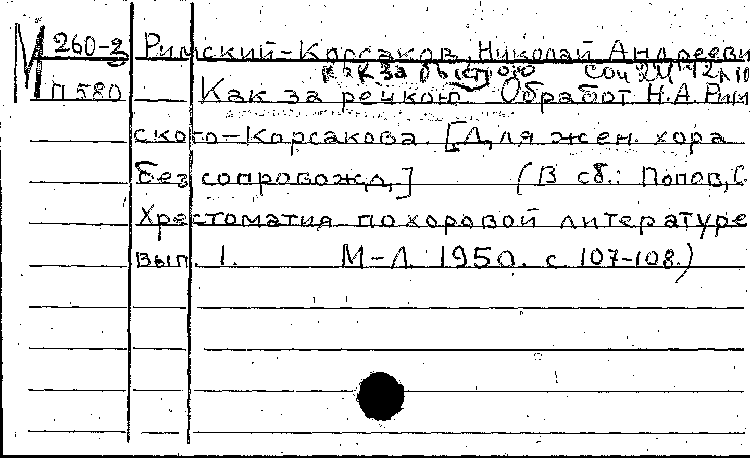 М 260-2 Римский-Корсаков, Николай Андрееви
как за быстрою соч 24 №2
П 580 Как за речкою. Обработ. Н.А. Рим
ского-Корсакова. [Для жен. хора
без сопровожд.] (В сб.: Попов, С.
Хрестоматия по хоровой литературе
вып. 1. М-Л. 1950. с 107-108.)